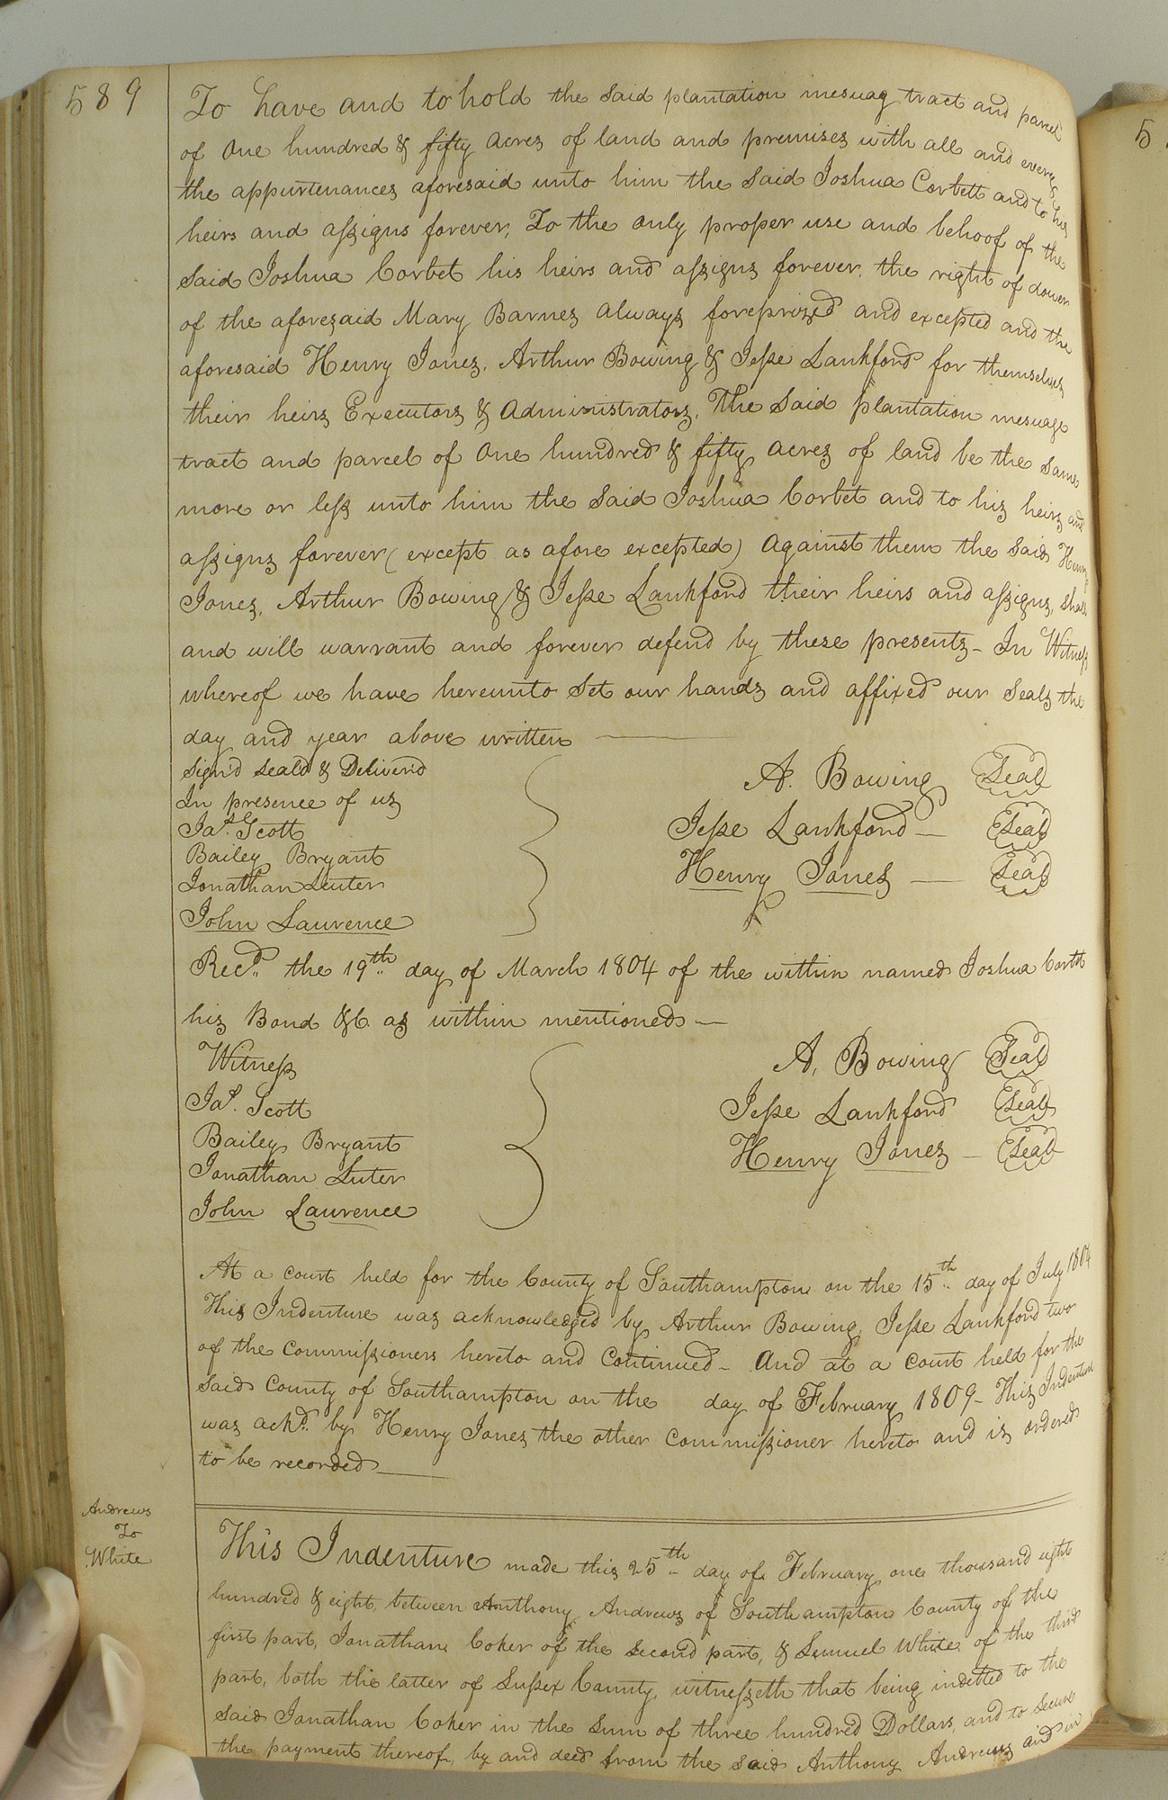 589
To have and to hold the said plantation mesuag tract and parcel
of One hundred & fifty acres of land and premises with all and every
the appurtenances aforesaid unto him the said Joshua Corbett and to his
heirs and assigns forever, To the only proper use and behoof of the
said Joshua Corbet his heirs and assigns forever, the right of dower
of the aforesaid Mary Barnes always foreprized and excepted and the
aforesaid Henry Jones, Arthur Bowing & Jesse Lankford for themselves
their heirs Executors & Administrators, The said plantation mesuage
tract and parcel of One hundred & fifty acres of land be the same
more or less unto him the said Joshua Corbet and to his heirs and
assigns forever (except as afore excepted) Against them the said Henry
Jones, Arthur Bowing & Jesse Lankford their heirs and assigns, shall
and will warrant and forever defend by these presents - In Witness
whereof we have hereunto set our hands and affixed our Seals the
day and year above written
Sign'd Seald & Deliver'd
In presence of us
Jas. Scott
Bailey Bryant
Jonathan Luter
John Laurence
A. Bowing Seal
Jesse Lankford — Seal
Henry Jones — Seal
Recd. the 19th day of March 1804 of the within named Joshua Corbt
his Bond &c. as within mentioned —
Witness
Jas. Scott
Bailey Bryant
Jonathan Luter
John Laurence
A. Bowing Seal
Jesse Lankford Seal
Henry Jones — Seal
At a court held for the County of Southampton on the 15th day of July 1804
This Indenture was acknowledged by Arthur Bowing, Jesse Lankford two
of the Commissioners hereto and Continued - And at a court held for the
said County of Southampton on the day of February 1809 - This Indenture
was ackd. by Henry Jones the other Commissioner hereto and is ordered
to be recorded
Andrews
To
White
This Indenture made this 25th day of February one thousand eight
hundred & eight, between Anthony Andrews of Southampton County of the
first part, Jonathan Coker of the second part, & Lemuel White of the third
part, both the latter of Sussex County, witnesseth that being indetted to the
said Jonathan Coker in the Sum of three hundred Dollars, and to secure
the payment thereof, by and deed from the said Anthony Andrews and in
5